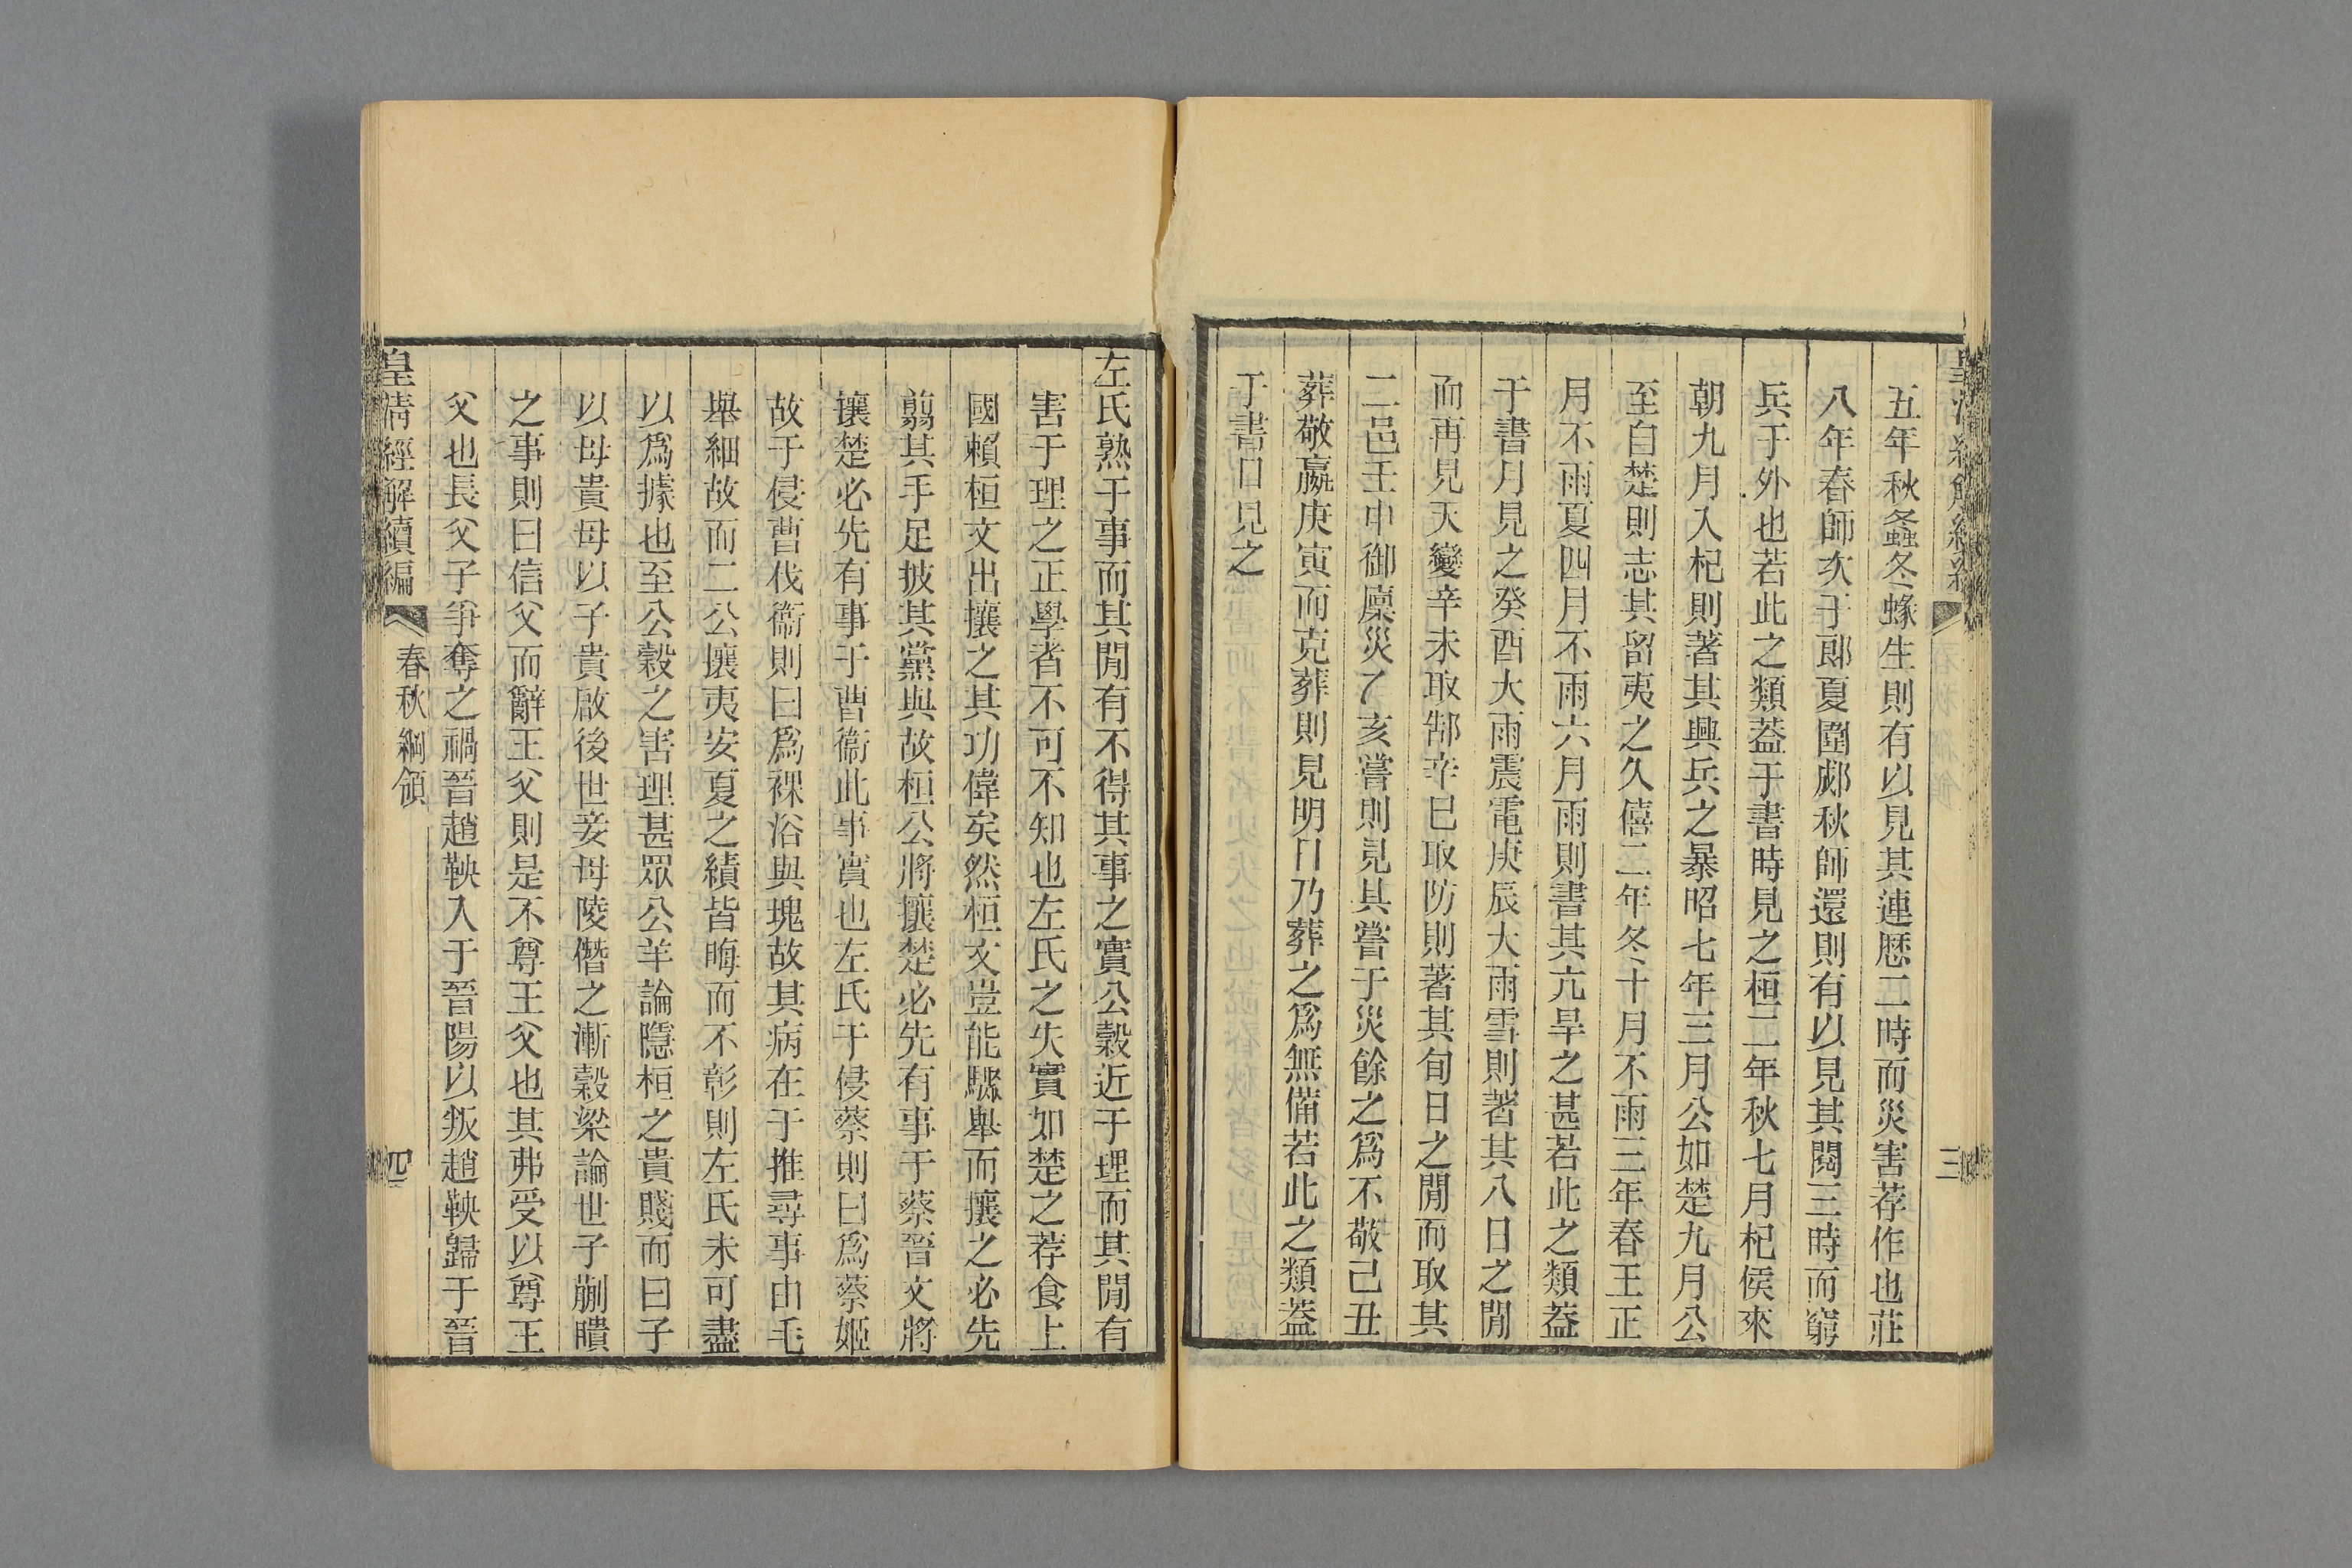 五年秋螽冬蝝生則有以見其連歷二時而災害荐作也莊
八年春師次于郎夏圍郕秋師還則有以見其閱三時而窮
兵于外也若此之類蓋于書時見之桓二年秋七月杞侯來
朝九月入杞則著其興兵之暴昭七年三月公如楚九月公
至自楚則志其留夷之久僖二年冬十月不雨三年春王正
月不雨夏四月不雨六月雨則書其亢旱之甚若此之類蓋
于書月見之癸酉大雨震電庚辰大雨雪則著其八日之閒
而再見天變辛未取郜辛巳取防則著其旬日之閒而取其
二邑壬申御廩災乙亥嘗則見其嘗于災餘之爲不敬己丑
葬敬嬴庚寅而克葬則見明日乃葬之爲無備若此之類蓋
于書日見之
三
左氏熟于事而其閒有不得其事之實公穀近于理而其閒有
害于理之正學者不可不知也左氏之失實如楚之荐食上
國賴桓文出攘之其功偉矣然桓文豈能驟舉而攘之必先
翦其手足披其黨與故桓公將攘楚必先有事于蔡晉文將
攘楚必先有事于曹衞此事實也左氏于侵蔡則曰爲蔡姬
故于侵曹伐衞則曰爲裸浴與塊故其病在于推尋事由毛
舉細故而二公攘夷安夏之績皆晦而不彰則左氏未可盡
以爲據也至公穀之害理甚眾公羊論隱桓之貴賤而曰子
以母貴母以子貴啟後世妾母陵僭之漸穀梁論世子蒯聵
之事則曰信父而辭王父則是不尊王父也其弗受以尊王
父也長父子爭奪之禍晉趙鞅入于晉陽以叛趙鞅歸于晉
皇淸經解續編
春秋綱領
四